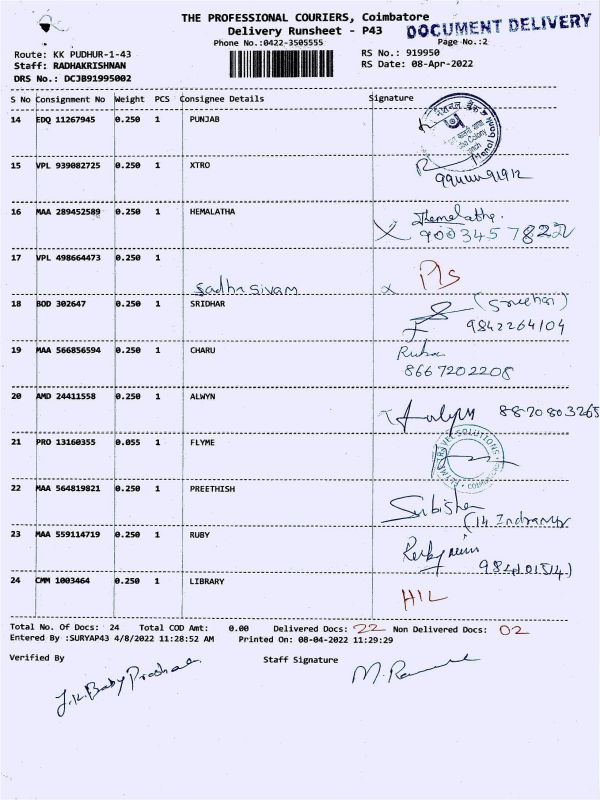 THE PROFESSIONAL COURIERS, Coimbatore
DOCUMENT DELIVERY
Delivery Runsheet - P43
Phone No.:0422-3505555
Page No.:2
Route: KK PUDHUR-1-43
RS No.: 919950
Staff: RADHAKRISHNAN
RS Date: 08-Apr-2022
DRS No.: DCJB91995002
S No Consignment No Weight PCS Consignee Details Signature
14 EDQ 11267945 0.250 1 PUNJAB
15 VPL 939082725 0.250 1 XTRO
16 MAA 289452589 0.250 1 HEMALATHA Hemalatha.
9003457822
17 VPL 498664473 0.250 1 Sadhasivam x PLS
18 BOD 302647 0.250 1 SRIDHAR
9842264104
19 MAA 566856594 0.250 1 CHARU
8667202208
20 AMD 24411558 0.250 1 ALWYN
8870803265
21 PRO 13160355 0.055 1 FLYME
22 MAA 564819821 0.250 1 PREETHISH
23 MAA 559114719 0.250 1 RUBY
24 CMM 1003464 0.250 1 LIBRARY HIL
Total No. Of Docs: 24 Total COD Amt: 0.00 Delivered Docs: 22 Non Delivered Docs: 02
Entered By :SURYAP43 4/8/2022 11:28:52 AM Printed On: 08-04-2022 11:29:29
Verified By Staff Signature